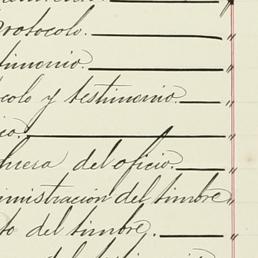 rotocolo. "
timonio. "
colo y testimonio. "
cio. "
huera del oficio. "
ministración del timbre "
to del timbre. "